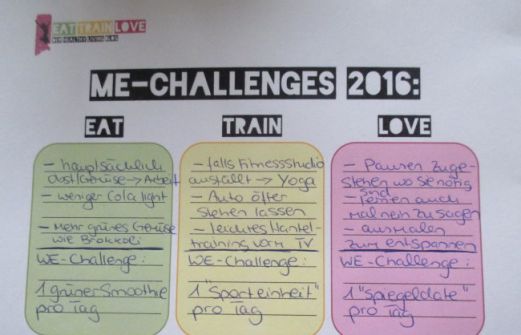 EAT TRAIN LOVE
ME-CHALLENGES 2016:
EAT
- hauptsächlich
obst/Gemüse → Arbeit
- weniger Cola light
- Mehr grünes Gemüse
wie Brokkoli
WE-Challenge:
1 grüner Smoothie
pro Tag
TRAIN
- falls Fitnessstudio
ausfällt → Yoga
- Auto öfter
stehen lassen
- leichtes Hantel-
training vorm TV
WE-Challenge:
1 "Sporteinheit"
pro Tag
LOVE
- Pausen zuge-
stehen wo sie nötig
sind
- lernen auch
mal nein zu sagen
- ausmalen
zum entspannen
WE-Challenge:
1 "Spiegeldate"
pro Tag